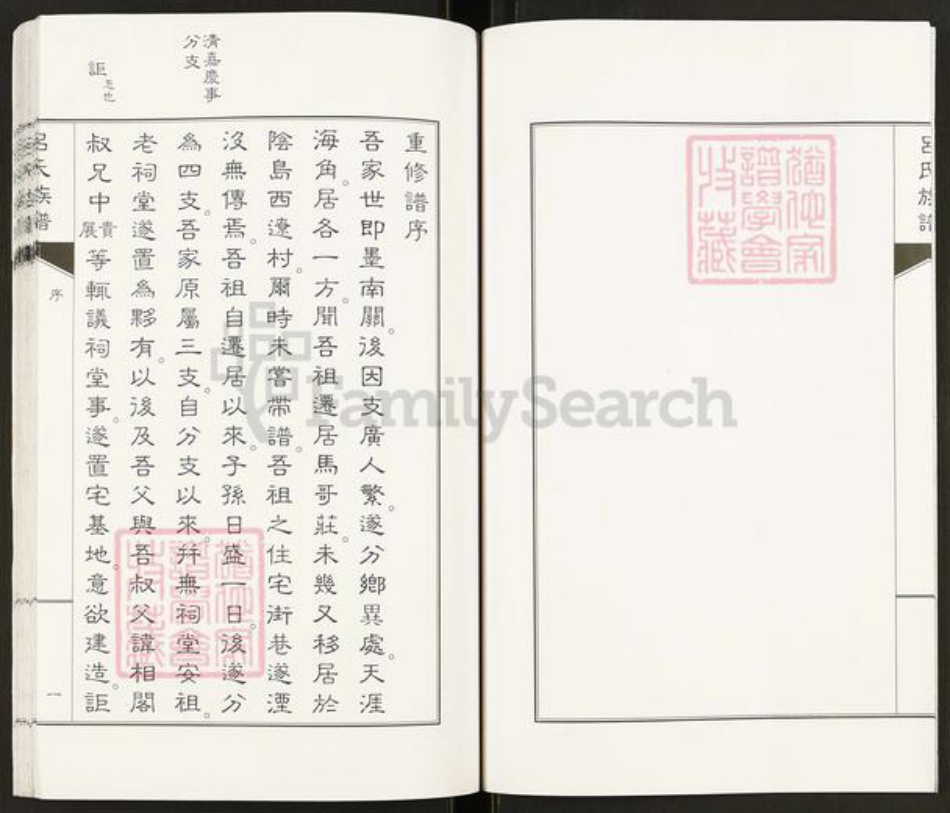 呂氏族譜
猶他家
譜學會
收藏
清嘉慶事
分支
詎 怎也
重修譜序
吾家世即墨南關。後因支廣人繁。遂分鄉異處。天涯
海角。居各一方。聞吾祖遷居馬哥莊。未幾又移居於
陰島西遼村。爾時未嘗帶譜。吾祖之住宅街巷遂湮
沒無傳焉。吾祖自遷居以來。子孫日盛一日。後遂分
為四支。吾家原屬三支。自分支以來。幷無祠堂安祖。
老祠堂遂置為夥有。以後及吾父與吾叔父諱相閣
叔兄中貴展等輒議祠堂事。遂置宅基地。意欲建造。詎
猶他家
譜學會
收藏
呂氏族譜
序
一
FamilySearch